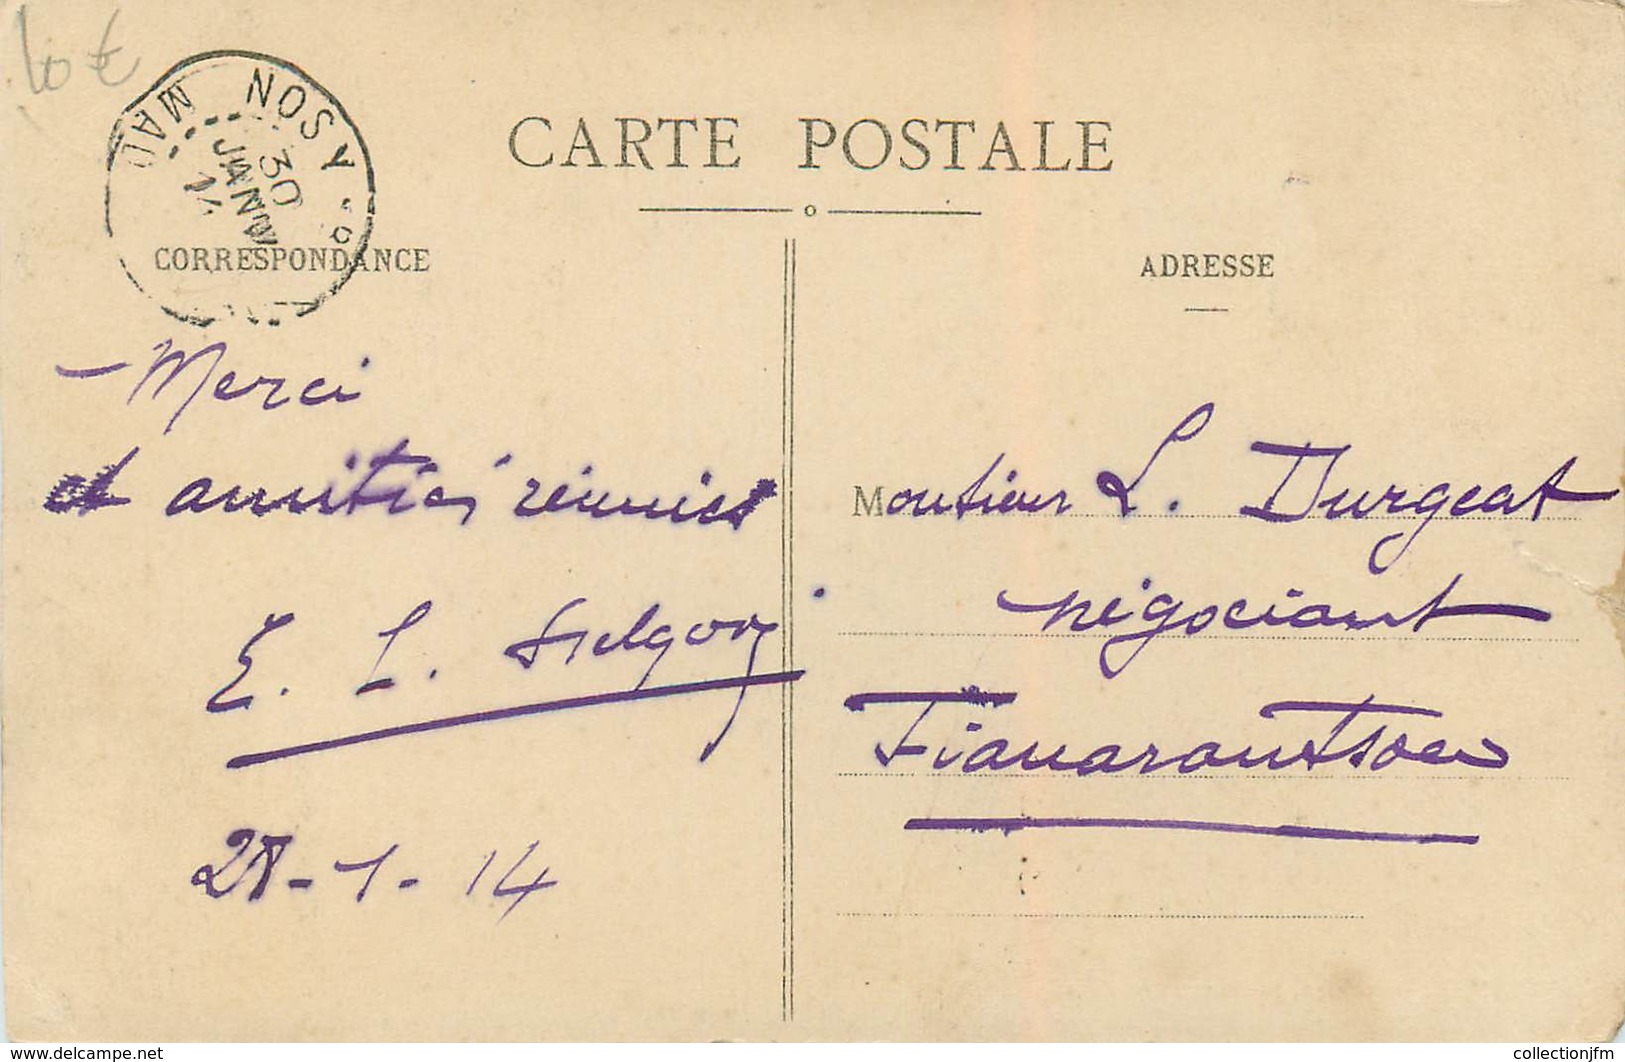 10 €
NOSY
MAD
30
JANV
14
CARTE POSTALE
CORRESPONDANCE
ADRESSE
Merci
et amitiés réunies
E. L.
28-1-14
Monsieur L. Durgeat
négociant
Fianarantsoa
www.delcampe.net
collectionjfm